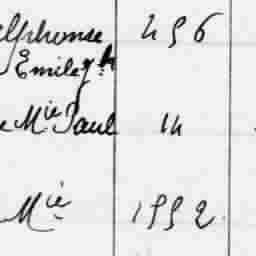 Alphonse 496
Emile
Mie Paul 14
Mie 1992